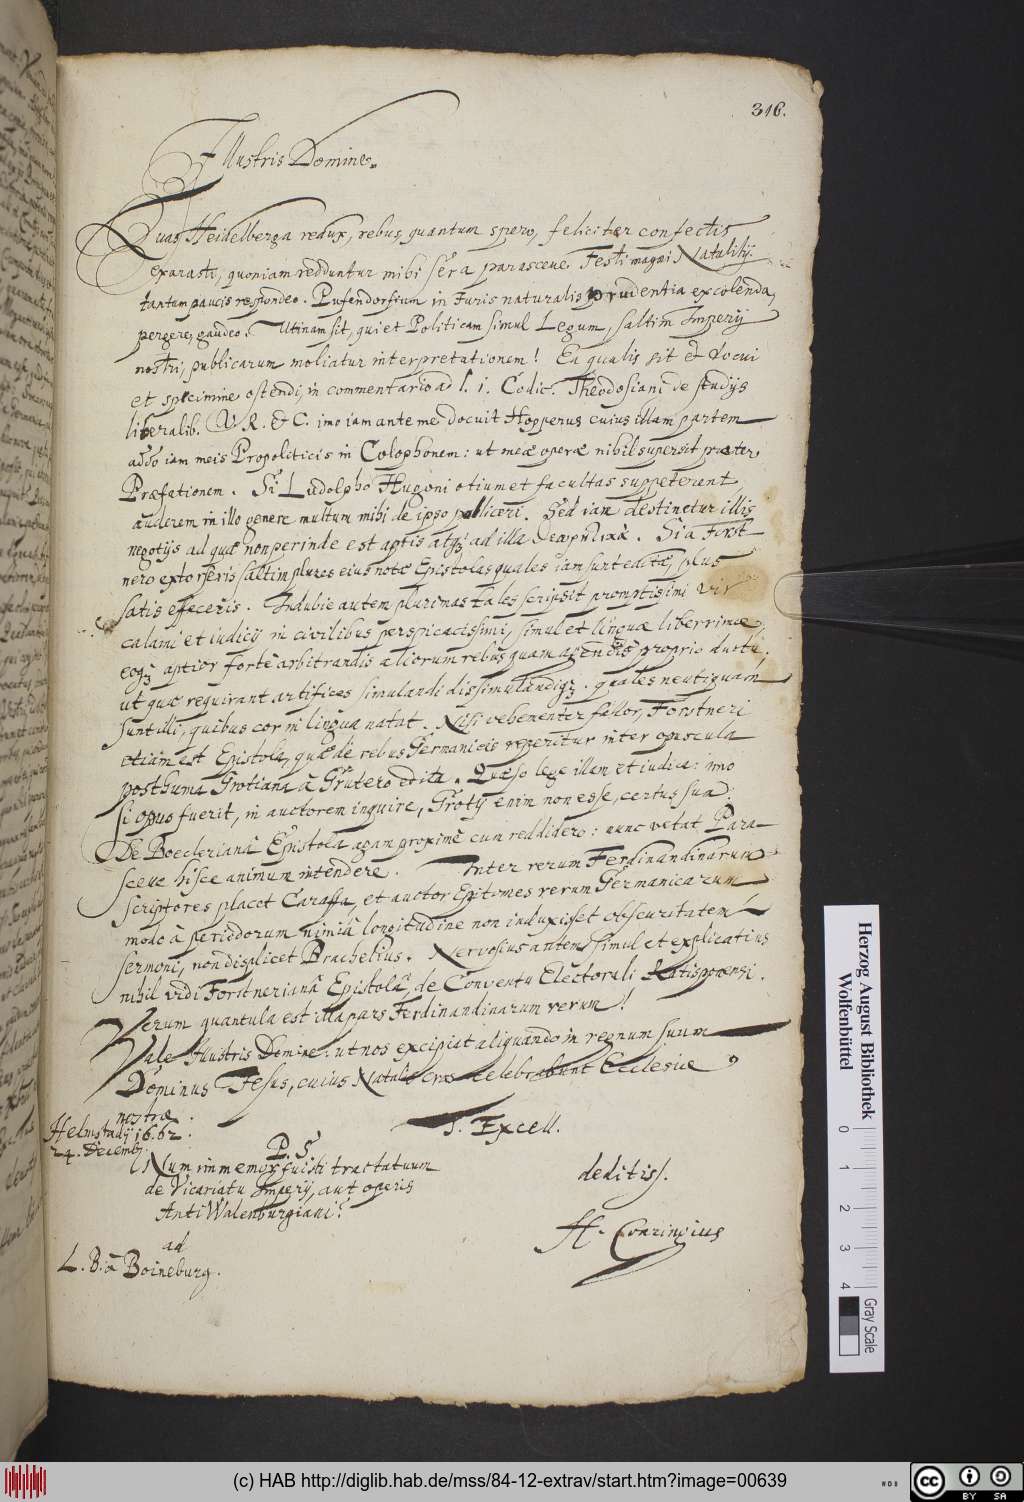 316.
Illustris Domine.
Quas Heidelberga redux, rebus, quantum spero, feliciter confectis
exarasti, quoniam redduntur mihi sera parasceve Festi magni Natalitij.
tantum paucis respondeo. Pufendorfium in Juris naturalis prudentia excolenda,
pergere, gaudeo. Utinam sit, qui et Politicam simul Legum, saltim Imperij
nostri, publicarum moliatur interpretationem! Ea qualis sit et docui
et specimine ostendi, in commentario ad l. 1. Codic. Theodosiani de studijs
liberalib. V. R. & C. imo iam ante me docuit Hoppenus cuius illam partem
addo iam meis Propoliticis in Colophonem: ut meæ operæ nihil supersit præter
Præfationem. Si Ludolpho Hugoni otium et facultas suppeterent,
auderem in illo genere multum mihi de ipso polliceri. Sed iam destinetur illis
negotijs ad quæ non perinde est aptis atq; ad illa θεωρητικὰ. Si a Forst-
nero extorseris saltim plures eius notæ Epistolas quales iam sunt editæ, plus
satis effeceris. Indubie autem plurimas tales scripsit promptissimi vir
calami et iudicij in civilibus perspicacissimi, simul et linguæ liberrimæ,
eoq; aptior fortè arbitrandis aliorum rebus quam agendis proprio ductu,
ut quæ requirant artifices simulandi dissimulandiq;. quales neutiquam
sunt illi, quibus cor in lingua natat. Nisi vehementer fallor, Forstneri
etiam est Epistola, quæ de rebus Germanicis reperitur inter opuscula
posthuma Grotiana à Grutero edita. Quæso lege illam et iudica: imo
si opus fuerit, in auctorem inquire, Grotij enim non esse, certus sum.
De Boecleriana Epistola agam proximè cum reddidero: nunc vetat Para-
sceve hisce animum intendere. Inter rerum Ferdinandinarum
scriptores placet Caraffa, et auctor Epitomes rerum Germanicarum
modo à periodorum nimiâ longitudine non induxisset obscuritatem
sermoni, non displicet Brachelius. Nervosius autem simul et explicatius
nihil vidi Forstnerianâ Epistolâ, de Conventu Electorali Ratisponensi.
Verum quantula est illa pars Ferdinandinarum rerum!
Vale Illustris Domine. ut nos excipiat aliquando in regnum suum
Dominus Jesus, cuius Natale cras celebrabunt Ecclesiæ
nostræ.
Helmstadij 1662.
24. Decemb.
T. Excell.
P. S.
Num immemor fuisti tractatuum
de Vicariatu Imperij, aut operis
Anti Walenburgiani?
deditiss.
H. Conringius
ad
L. B. à Boineburg.
Herzog August Bibliothek
Wolfenbüttel
0 1 2 3 4
Gray Scale
(c) HAB http://diglib.hab.de/mss/84-12-extrav/start.htm?image=00639
WDB
cc BY SA